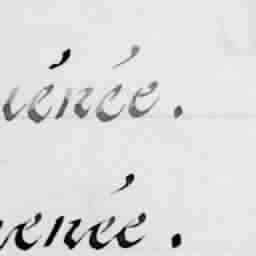 énée.
enée.